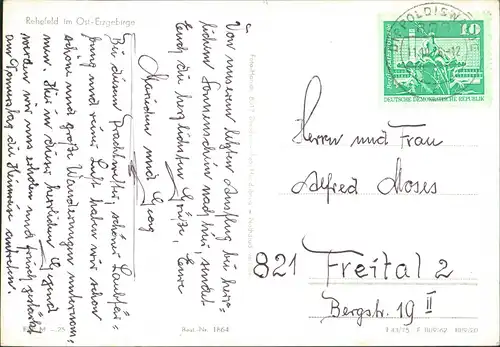 Rehefeld im Ost-Erzgebirge
Von unserem letzten Ausflug bei herr-
lichem Sonnenschein nach hier, sendet
Euch die herzlichsten Grüße, Eure
Marichen und Georg
Bei diesem Prachtwetter, schöner Laubfär-
bung und reiner Luft haben wir schon
schöne und große Wanderungen unternom-
men. Hier in dieser herrlichen Gegend
werden wir uns erholen und frisch gestärkt
am Donnerstag die Heimreise antreten.
Best.-Nr. 1864
DIPPOLDISW
10
DEUTSCHE DEMOKRATISCHE REPUBLIK
Herrn und Frau
Alfred Moses
821 Freital 2
Bergstr. 19 II